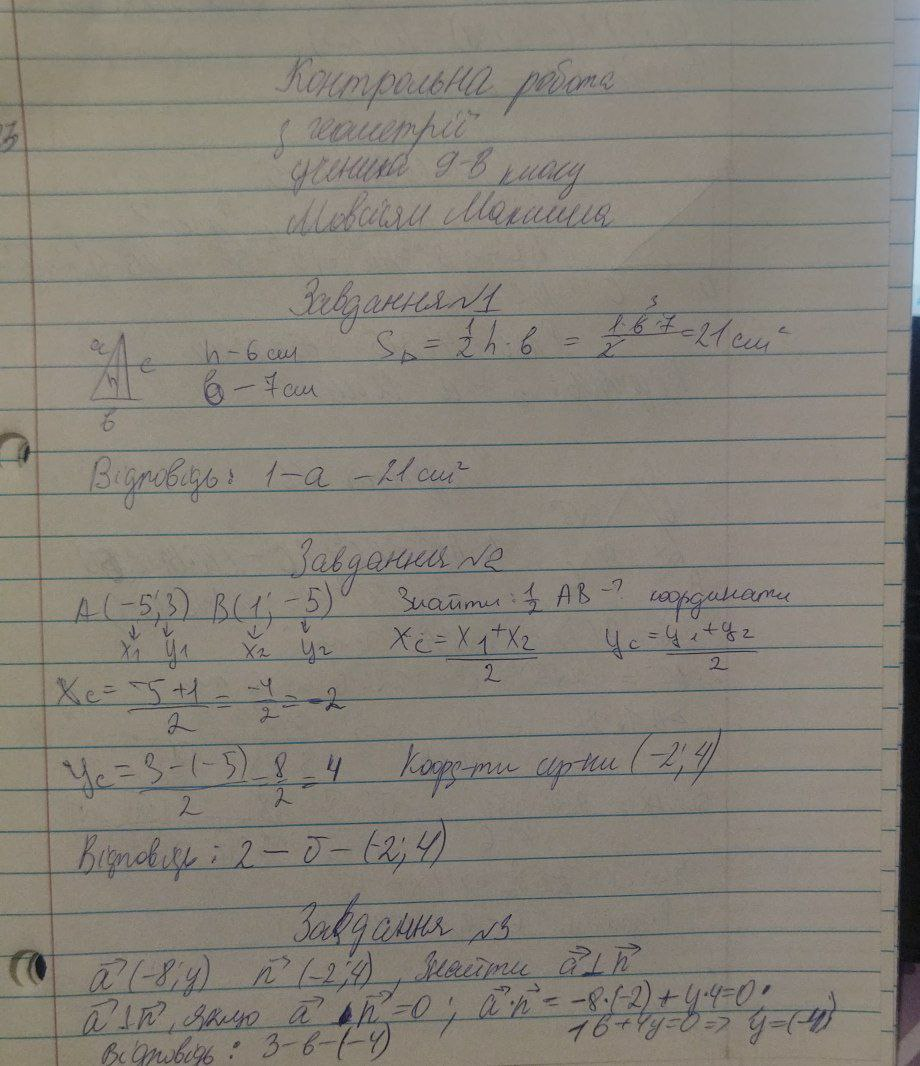 Контрольна робота
з геометрії
ученика 9-В класу
Мовсіян Максима
Завдання №1
a c h b
h - 6 см
b - 7 см
S△ = 1/2 h · b = 1·6·7/2 = 21 см²
3
Відповідь: 1 - а - 21 см²
Завдання №2
A (-5; 3) B (1; -5) Знайти: 1/2 AB - ? координати
x₁ y₁ x₂ y₂ Xc = X₁+X₂/2 yc = y₁+y₂/2
Xc = -5+1/2 = -4/2 = -2
yc = 3-(-5)/2 = 8/2 = 4 Коорд-ти сер-ни (-2; 4)
Відповідь: 2 - б - (-2; 4)
Завдання №3
a⃗ (-8; y) n⃗ (-2; 4), Знайти a⃗ ⊥ n⃗
a⃗ ⊥ n⃗, якщо a⃗ n⃗ = 0; a⃗ · n⃗ = -8·(-2) + y·4 = 0
16 + 4y = 0 => y = (-4)
Відповідь: 3 - в - (-4)